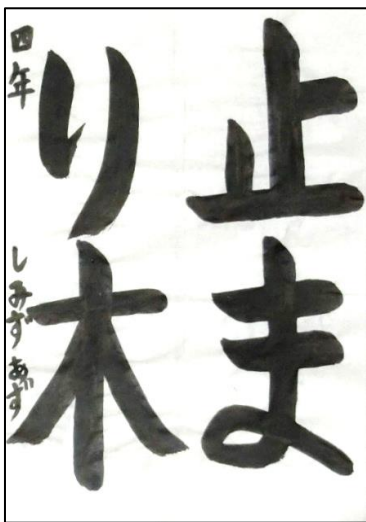 止ま
り木
四年 しみずあず